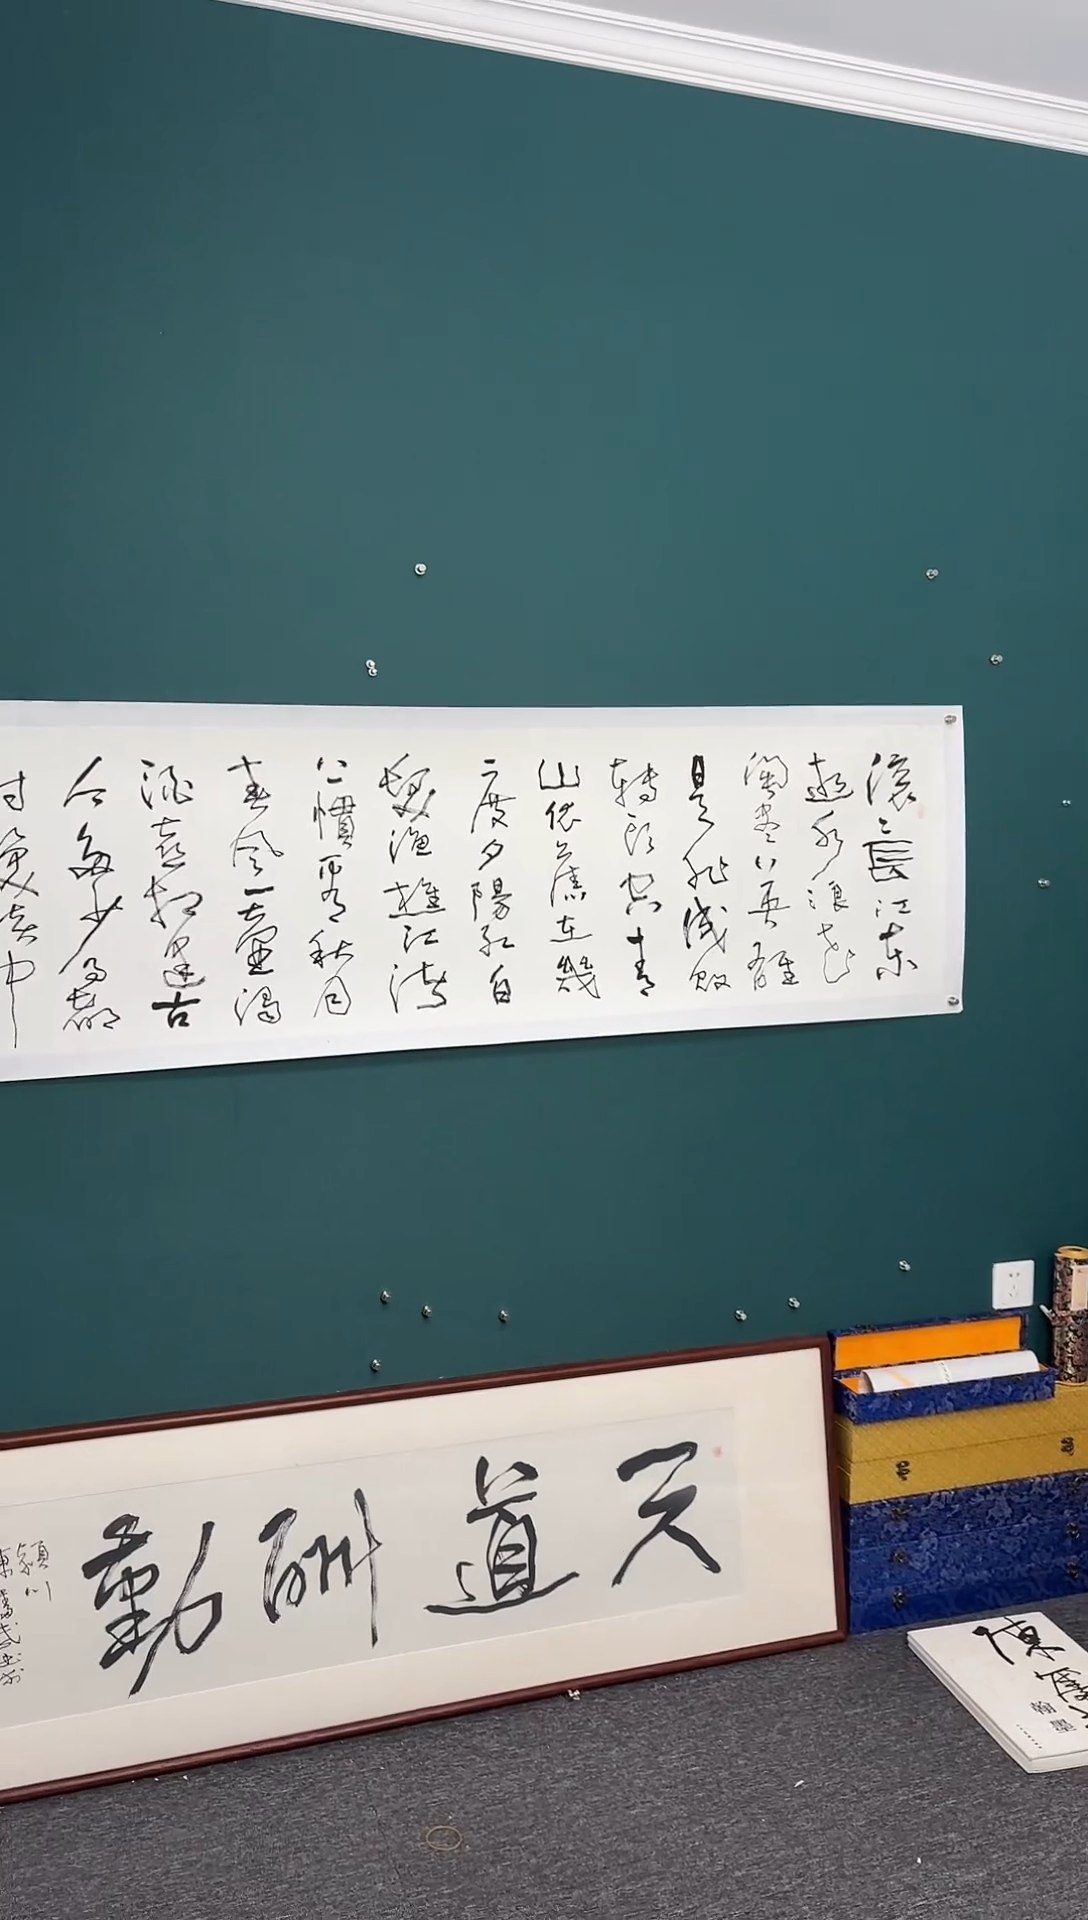 滚滚長江东
逝水浪花
淘尽英雄
是非成敗
转头空青
山依舊在幾
度夕陽红白
髮漁樵江渚
上慣看秋月
春风一壷濁
酒喜相逢古
今多少事都
付笑谈中
天道酬勤
颍川